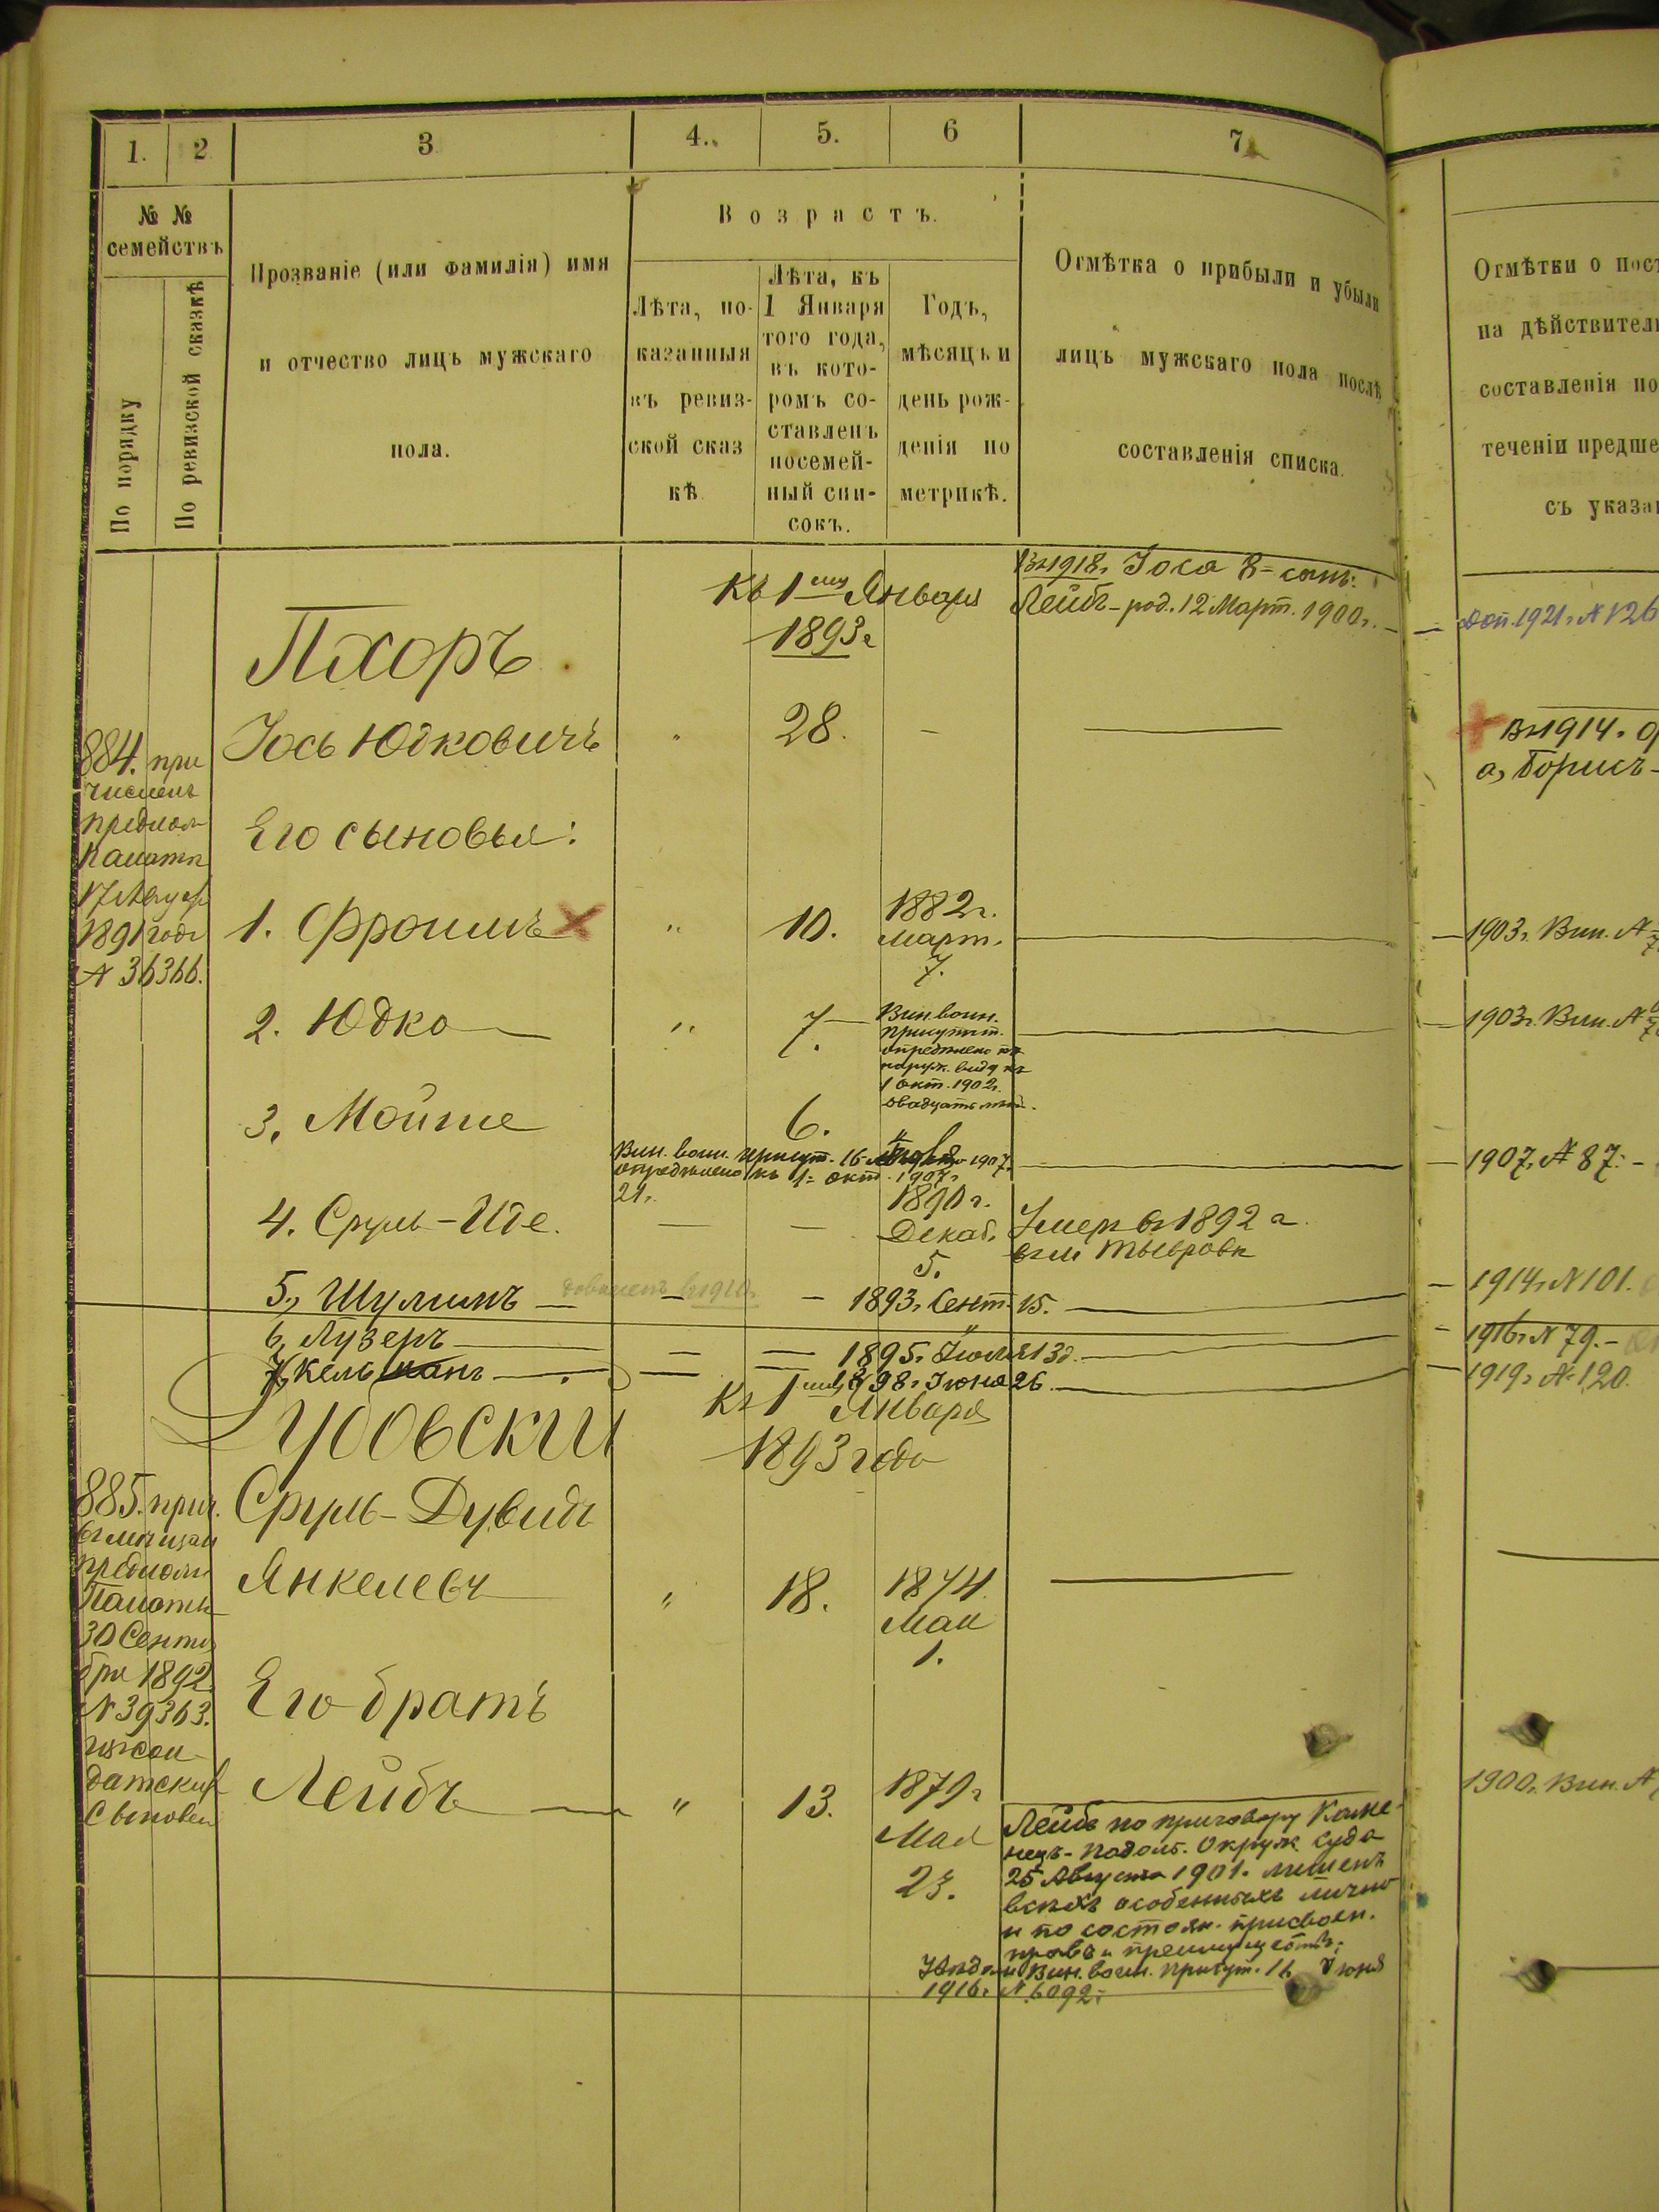 1.
2
3
4.
5.
6
7
№ №
семействъ
По порядку
По ревизской сказкѣ
Прозваніе (или фамилія) имя
и отчество лицъ мужскаго
пола.
Возрастъ.
Лѣта, по-
казанныя
въ ревиз-
ской сказ
кѣ
Лѣта, къ
1 Января
того года,
въ кото-
ромъ со-
ставленъ
посемей-
ный спи-
сокъ.
Годъ,
мѣсяцъ и
день рож-
денія по
метрикѣ.
Отмѣтка о прибыли и убыли
лицъ мужскаго пола послѣ
составленія списка.
Отмѣтки о пост
на дѣйствител
составленія по
теченіи предше
съ указа
Къ 1 Января
1893 г
Въ 1918 г. Іося 8=сынъ:
Лейбъ - род. 12 Март. 1900 г.
доп. 1921 г. № 126
Пхоръ
884. при
численъ
Палаты
1891 года
№ 36366.
Іось Юдковичъ
28.
Въ 1914 г.
а, Борисъ -
Его сыновья:
1. Фроимъ
10.
1882 г.
Март.
7.
1903 г. Вин. №
2. Юдко
7.
Вин. воин.
присутст.
опредѣлено по
наруж. виду къ
1 окт. 1902 г.
двадцать лѣтъ.
1903 г. Вин. №
3. Мойше
6.
Вин. воин. присут. 16 1907 г.
опредѣлено къ 1= окт. 1907 г.
21 г.
1907 г. № 87: -
4. Сруль-Иде.
1890 г.
Декаб.
5.
Умеръ въ 1892 г.
въ м Тывровѣ
5, Шулимъ
1893 г. Сент. 15.
1914 г. № 101.
6, Лузеръ
1895 г. Іюля 13 д.
1916 г. № 79. -
7, Кельманъ
1898 г. Іюня 26
1919 г. № 120.
Дубовскій
Къ 1 Января
1893 года
885. прич.
въ мѣщан
Палаты
30 Сентя
бря 1892
№ 39363.
изъ сол
датскихъ
сыновей
Сруль-Дувидъ
Янкелевъ
18.
1874
Мая
1.
Его братъ
Лейбъ
13.
1879 г
Мая
23.
1900 г. Вин. №
Лейбъ по приговору Каме-
нецъ-Подольс. Окруж. Суда
25 Августа 1901 г. лишенъ
всѣхъ особенныхъ лично
и по состоян. присвоен.
правъ и преимуществъ;
Увѣдом. Вин. воин. присут. 16 Іюня
1916 г. № 6092: